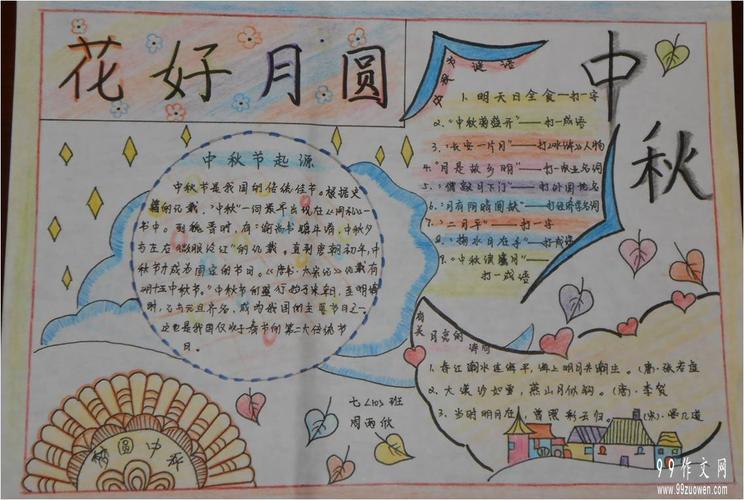 花好月圆
中秋
中秋节起源
中秋节是我国的传统佳节。根据史
籍的记载，“中秋”一词最早出现在《周礼》一
书中。到魏晋时，有“谕尚书镇牛渚，中秋夕
与左右微服泛江”的记载。直到唐朝初年，中
秋节才成为固定的节日。《唐书·太宗记》记载有
“八月十五中秋节”。中秋节的盛行始于宋朝，至明清
时，已与元旦齐名，成为我国的主要节日之一。
这也是我国仅次于春节的第二大传统节
日。
中秋谜语
1、明天日全食—打一字
2、“中秋菊盛开”——打一成语
3、“长安一片月”——打《水浒》人物
4、“月是故乡明”——打一
5、“僧敲月下门”——打外国地名
6、“月有阴晴圆缺”——打经济学名词
7、“二月平”——打一字
8、“掬水月在手”——打成语
9、“中秋
打一成语
有关月亮的诗词
1、春江潮水连海平，海上明月共潮生。（唐·张若虚
2、大漠沙如雪，燕山月似钩。（唐·李贺
3、当时明月在，曾照彩云归。（宋·晏几道
七〈10〉班
周雨欣
圆中秋
99作文网
www.99zuowen.com